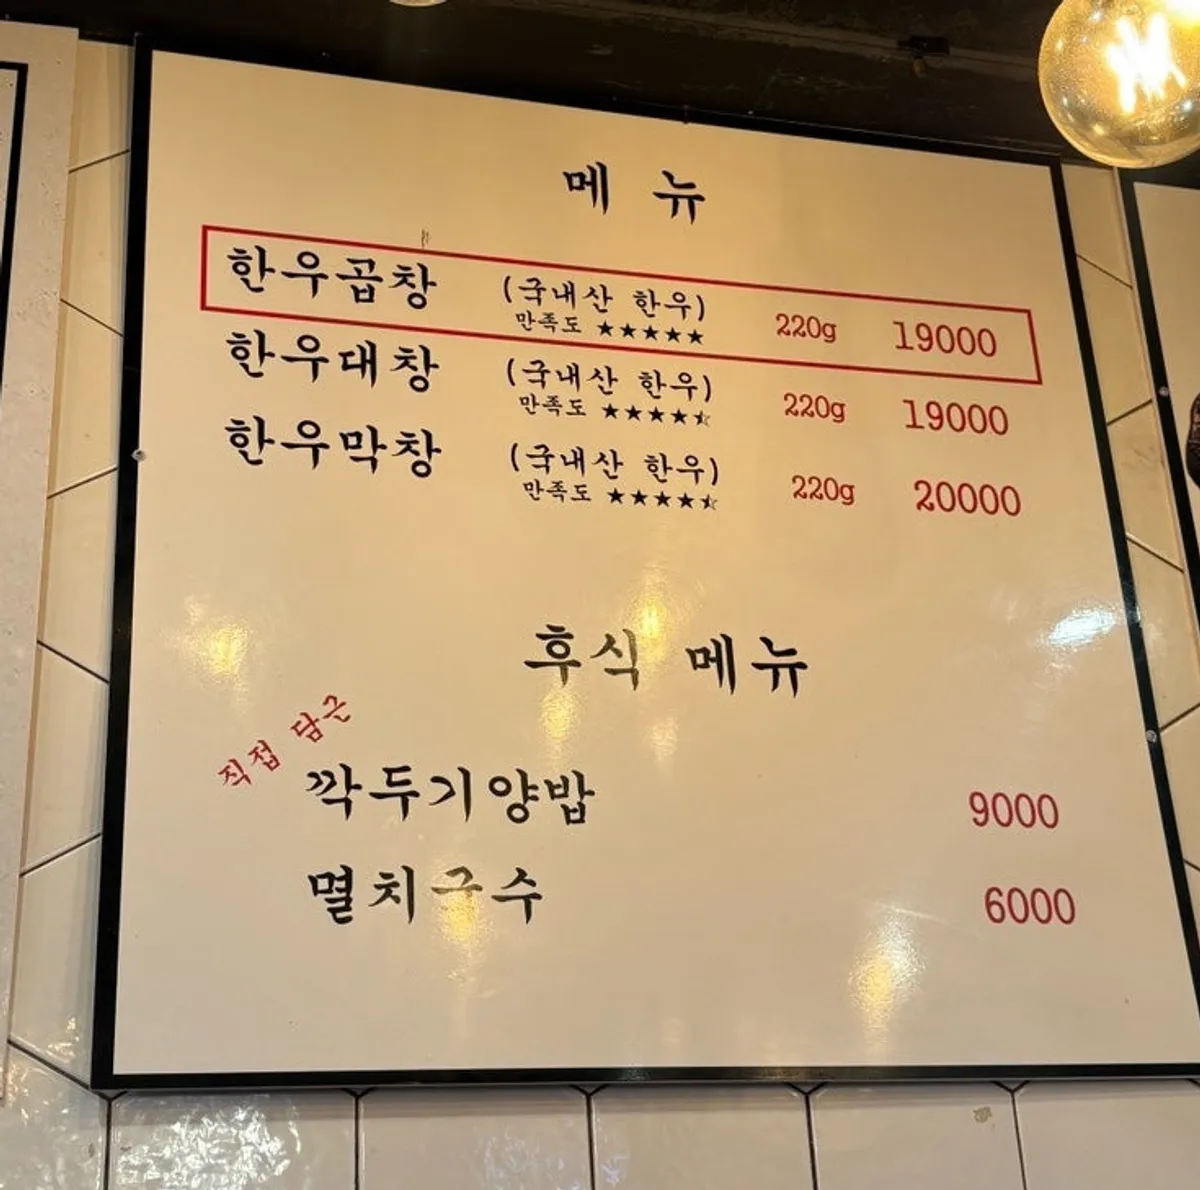 메뉴
한우곱창 (국내산 한우) 220g 19000
만족도 ★★★★★
한우대창 (국내산 한우) 220g 19000
만족도 ★★★★⯪
한우막창 (국내산 한우) 220g 20000
만족도 ★★★★⯪
후식 메뉴
직접 담근
깍두기양밥 9000
멸치국수 6000